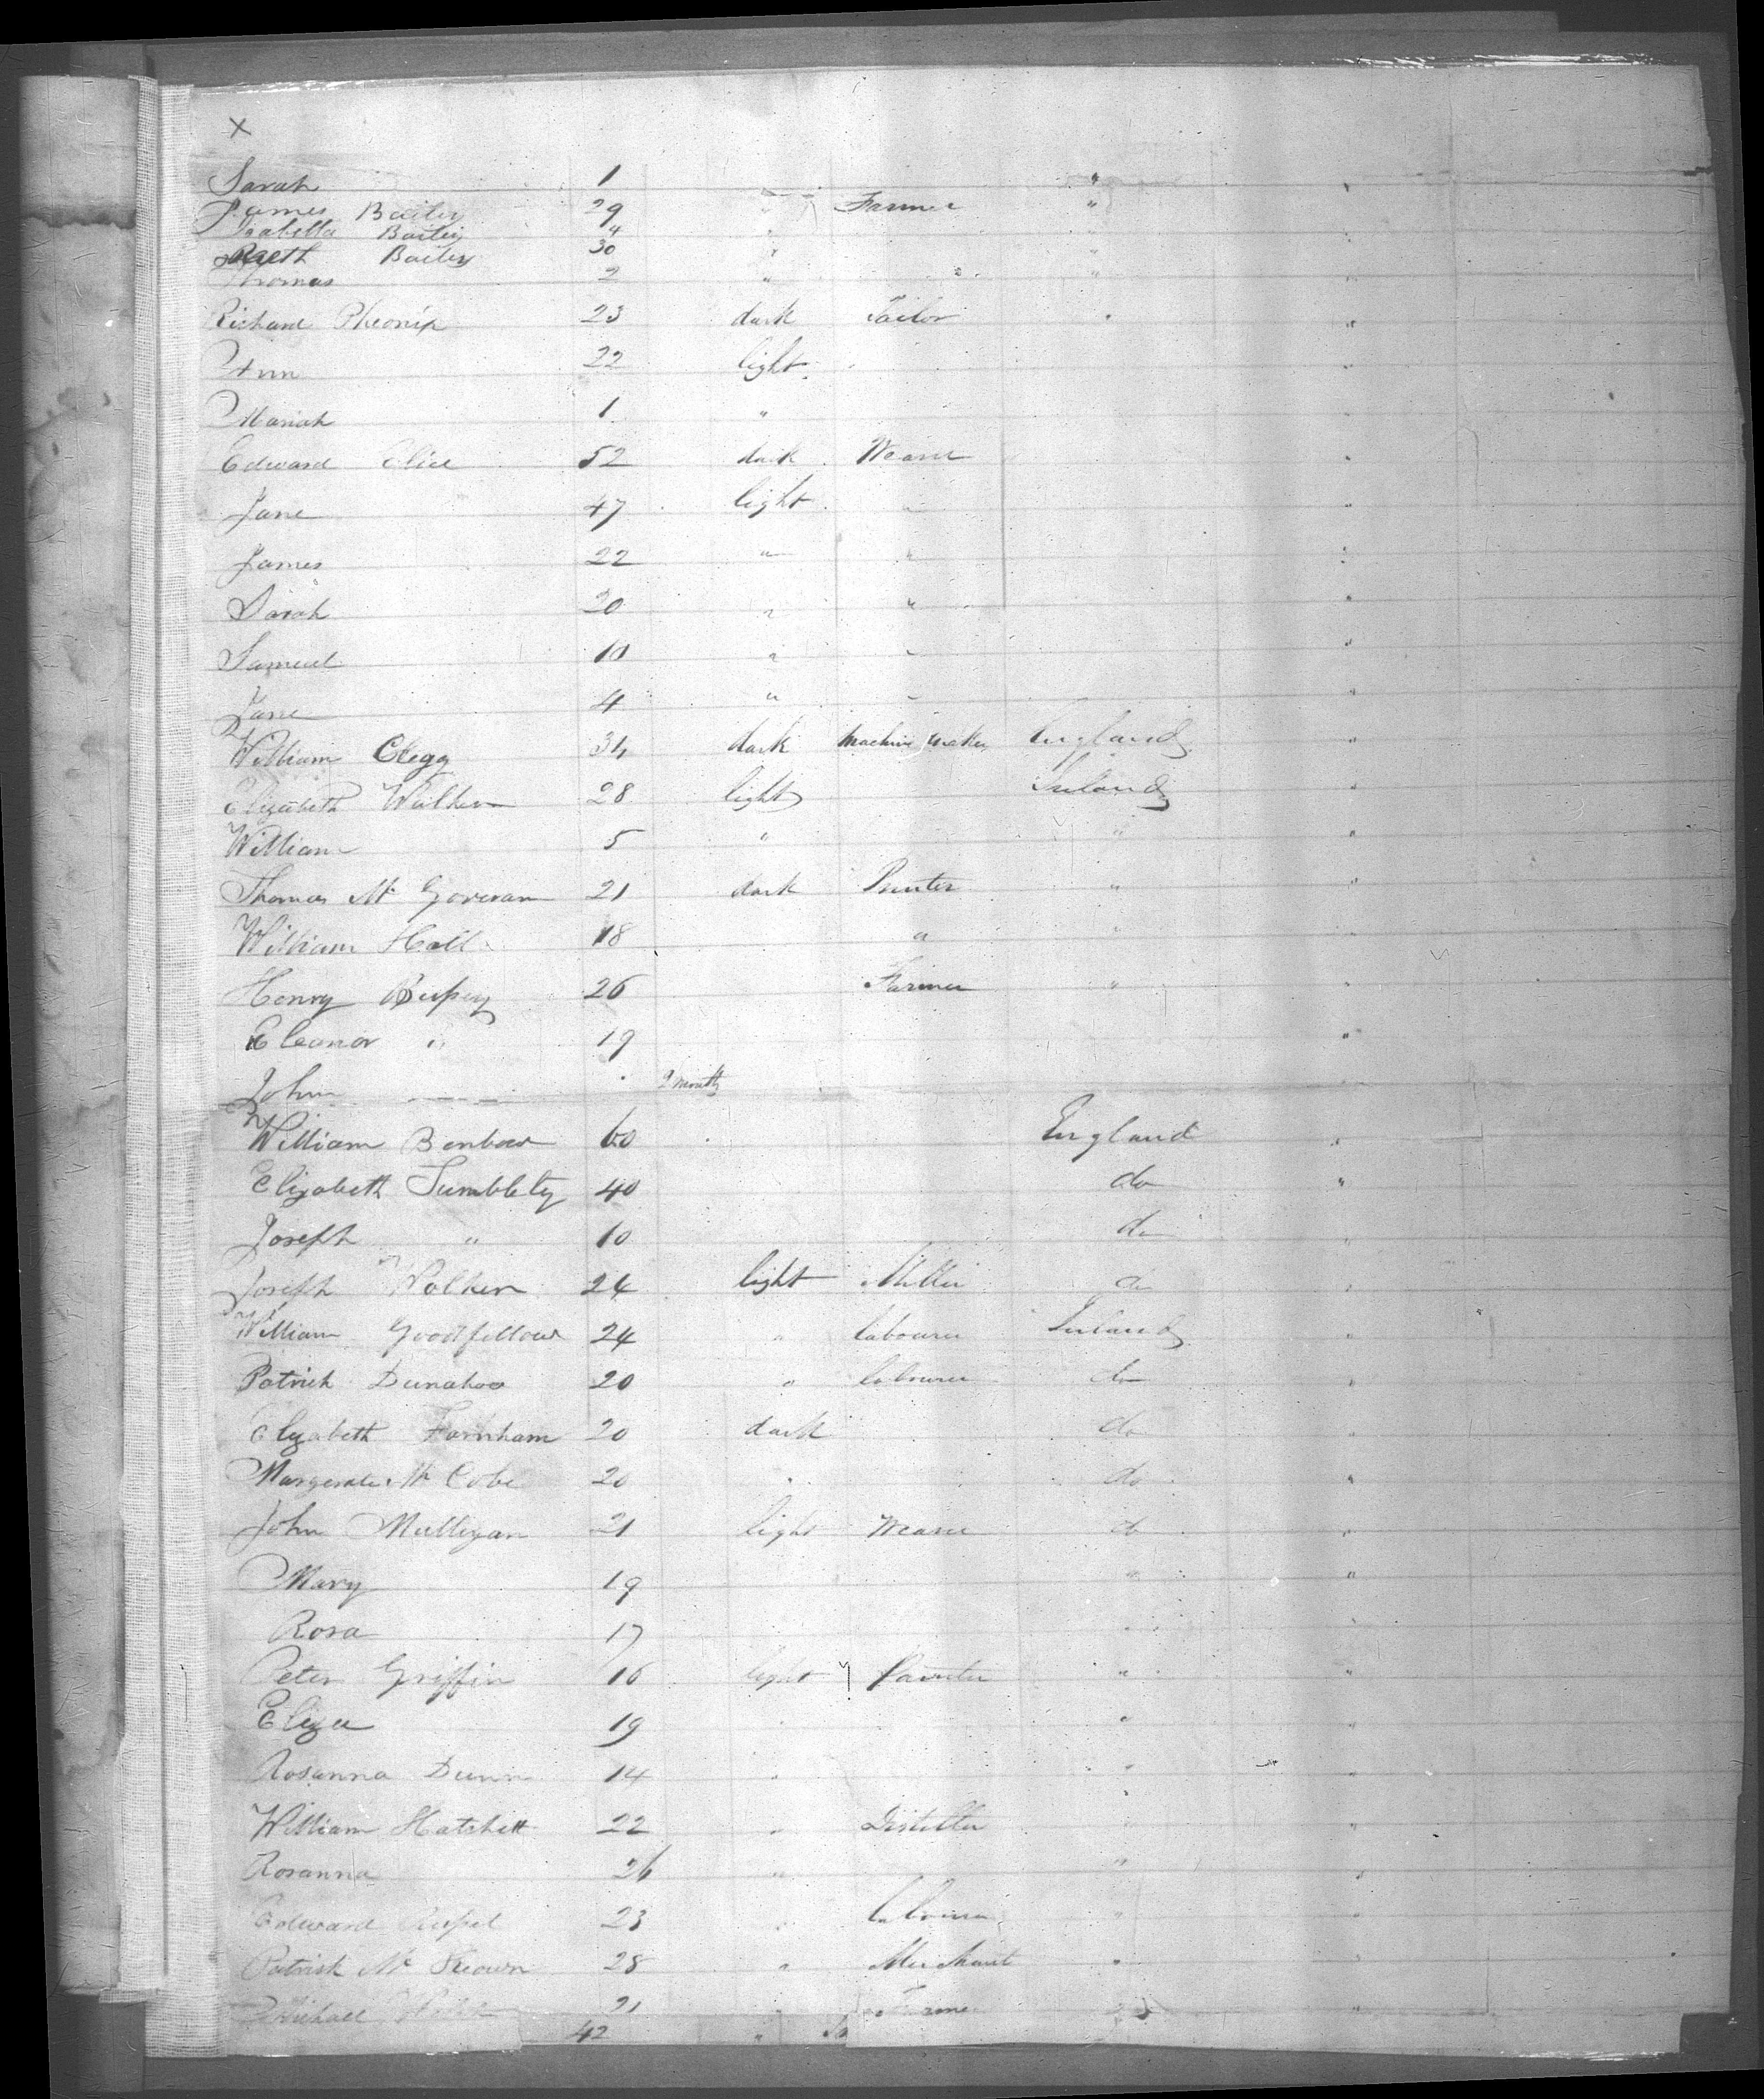 X
Sarah 1 " "
James Bailey 29 " Farmer " "
Isabella Bailey 4 " " "
Bailey 30 " " "
Thomas 2 " " " "
Richard Pheonix 23 dark Tailor " "
Ann 22 light "
Mariah 1 " "
Edward Clice 52 dark Weaver "
Jane 47 light " "
James 22 " " "
Sarah 20 " " "
Samuel 10 " " "
Jane 4 " " "
William Clegg 34 dark Machine Maker England "
Elizabeth Walker 28 light Ireland "
William 5 " " "
Thomas Mc Goveran 21 dark " "
William Hall 18 " " "
Henry 26 Farmer " "
Eleanor " 19 "
John 2 month
William Benbow 60 England "
Elizabeth Sumblety 40 do "
Joseph " 10 do "
Joseph Walker 24 light Miller do "
William Goodfellow 24 " labourer Ireland "
Patrick Dunahoo 20 " labourer do "
Elizabeth Farnham 20 dark do "
Margerate Mc Cobe 20 " do "
John Mulligan 21 light Weaver do "
Mary 19 " "
Rosa 17 " "
Peter Griffin 16 light Painter " "
Eliza 19 " "
Rosanna Dunn 14 " " "
William Hatchett 22 " Distiller " "
Rosanna 26 " " "
Edward 23 " labourer " "
Patrick Mc Keown 28 " Merchant " "
Michael 21 " Farmer "
42 " do